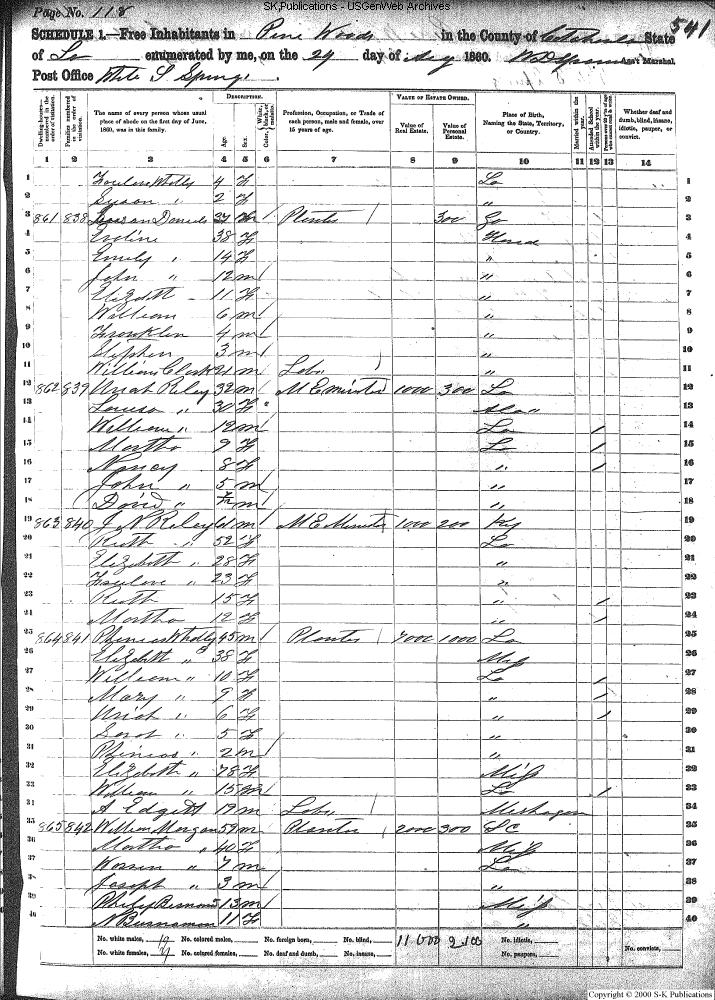 SK Publications - USGenWeb Archives
Page No. 118
541
SCHEDULE 1.—Free Inhabitants in Pine Woods in the County of Catahoula State
of La enumerated by me, on the 24 day of Aug 1860. Ass't Marshal.
Post Office White S Springs
DESCRIPTION. VALUE OF ESTATE OWNED.
Dwelling-houses—numbered in the order of visitation. Families numbered in the order of visitation. The name of every person whose usual place of abode on the first day of June, 1860, was in this family. Age. Sex. Color, White, black, or mulatto. Profession, Occupation, or Trade of each person, male and female, over 15 years of age. Value of Real Estate. Value of Personal Estate. Place of Birth, Naming the State, Territory, or Country. Married within the year. Attended School within the year. Persons over 20 y'rs of age who cannot read & write. Whether deaf and dumb, blind, insane, idiotic, pauper, or convict.
1 2 3 4 5 6 7 8 9 10 11 12 13 14
1 Wholly 4 F La 1
2 Susan " 2 F " 2
3 861 838 Daniels 37 m Planter / 300 Ga 3
4 Eveline 38 F 4
5 Emily " 14 F " 5
6 John " 12 m " 6
7 Elizabeth 11 F " 7
8 William 6 m " 8
9 Franklin 4 m " 9
10 Stephen 3 m " 10
11 William Clark 21 m Labr / 11
12 862 839 Uriah Riley 32 m M E minister 1000 300 La 12
13 Louisa " 30 F Ala " 13
14 William " 12 m La / 14
15 Martha 9 F La / 15
16 Nancy 8 F " / 16
17 John " 5 m " 17
18 David " m " 18
19 863 840 J N Riley 61 m M E Minister 1000 200 Ky 19
20 Ruth " 52 F La 20
21 Elizabeth " 28 F " 21
22 " 23 F " 22
23 Ruth 15 F " / 23
24 Martha 12 F " / 24
25 864 841 Phineas Wholly 45 m Planter / 7000 1000 La 25
26 Elizabeth " 38 F Miss 26
27 William " 10 F La / 27
28 Mary " 9 F " / 28
29 Uriah " 6 F " / 29
30 Sarah " 5 F " 30
31 Phineas " 2 m " 31
32 Elizabeth " 78 F Miss 32
33 William " 15 m La / 33
34 A Edgett 19 m Labr / Mishagen 34
35 865 842 William Morgan 59 m Planter 2000 300 S C 35
36 Martha " 40 F Miss 36
37 Warren " 7 m La 37
38 Joseph " 3 m " 38
39 Philip 13 m Miss 39
40 N 11 F " 40
No. white males, 19 No. colored males, No. foreign born, No. blind, 11000 2100 No. idiotic,
No. white females, No. colored females, No. deaf and dumb, No. insane, No. paupers, No. convicts,
Copyright © 2000 S-K Publications